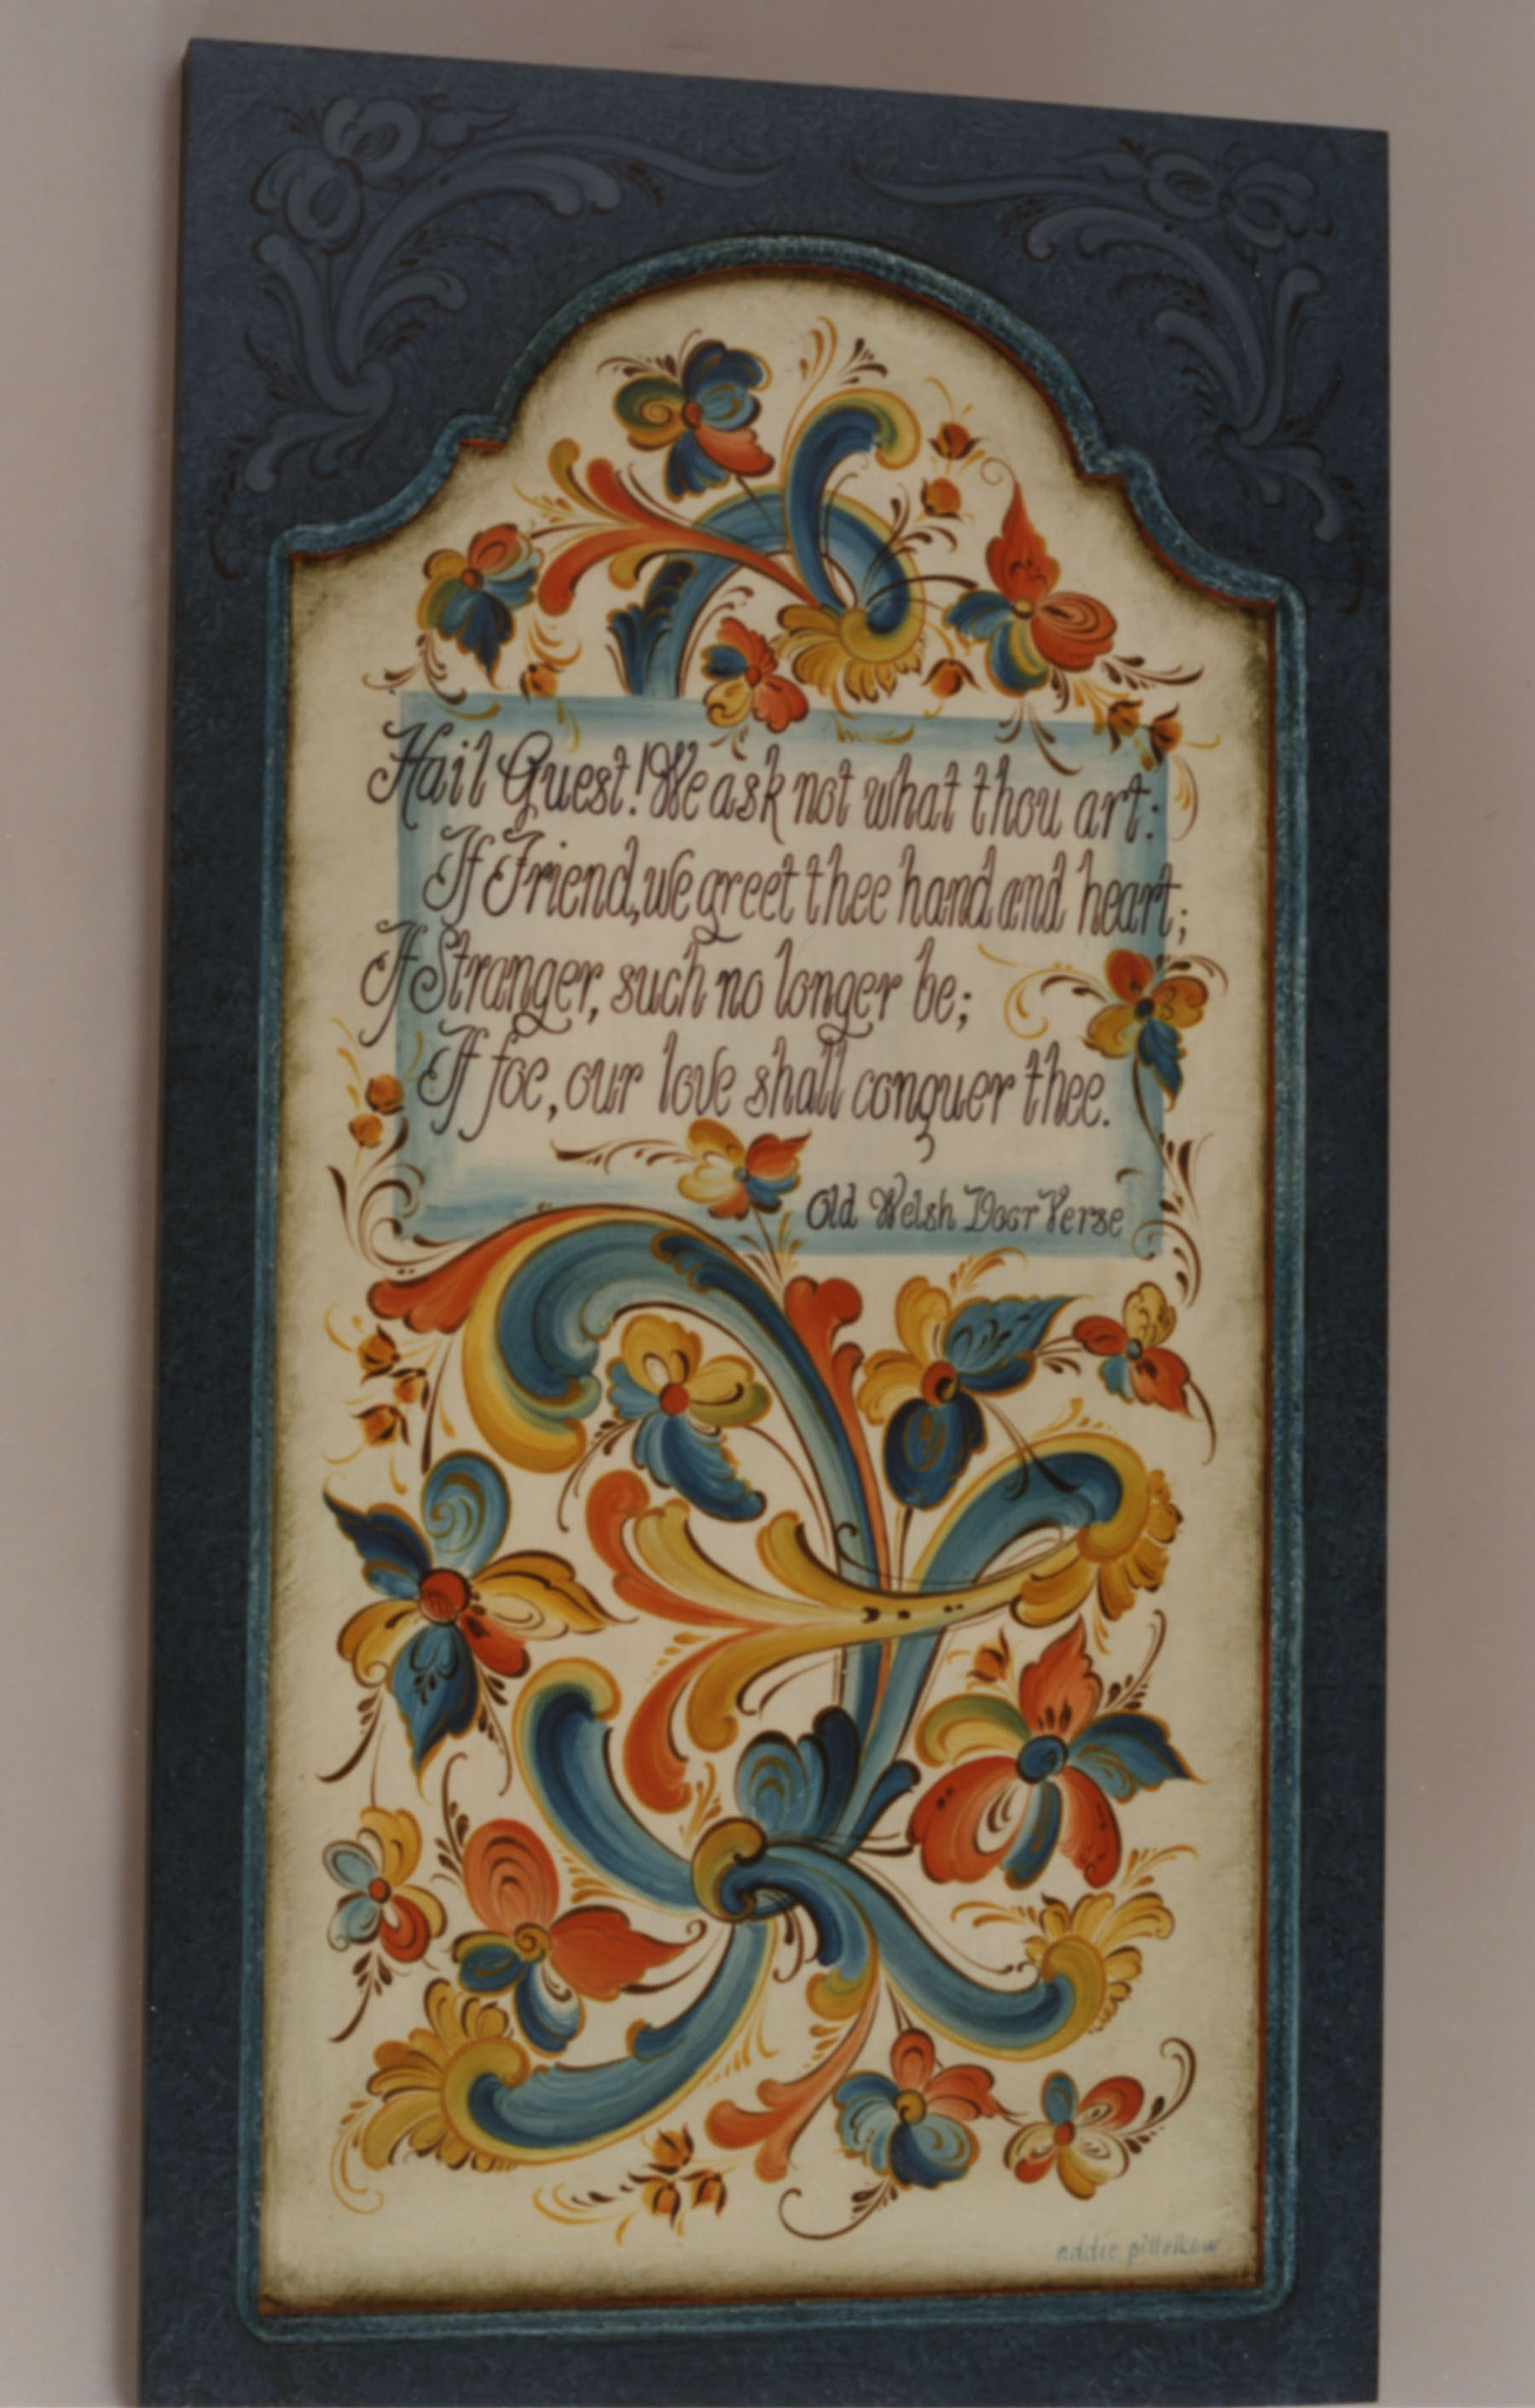 Hail Guest! We ask not what thou art:
If Friend, we greet thee hand and heart;
If Stranger, such no longer be;
If foe, our love shall conquer thee.
Old Welsh Door Verse
addie pittelkow